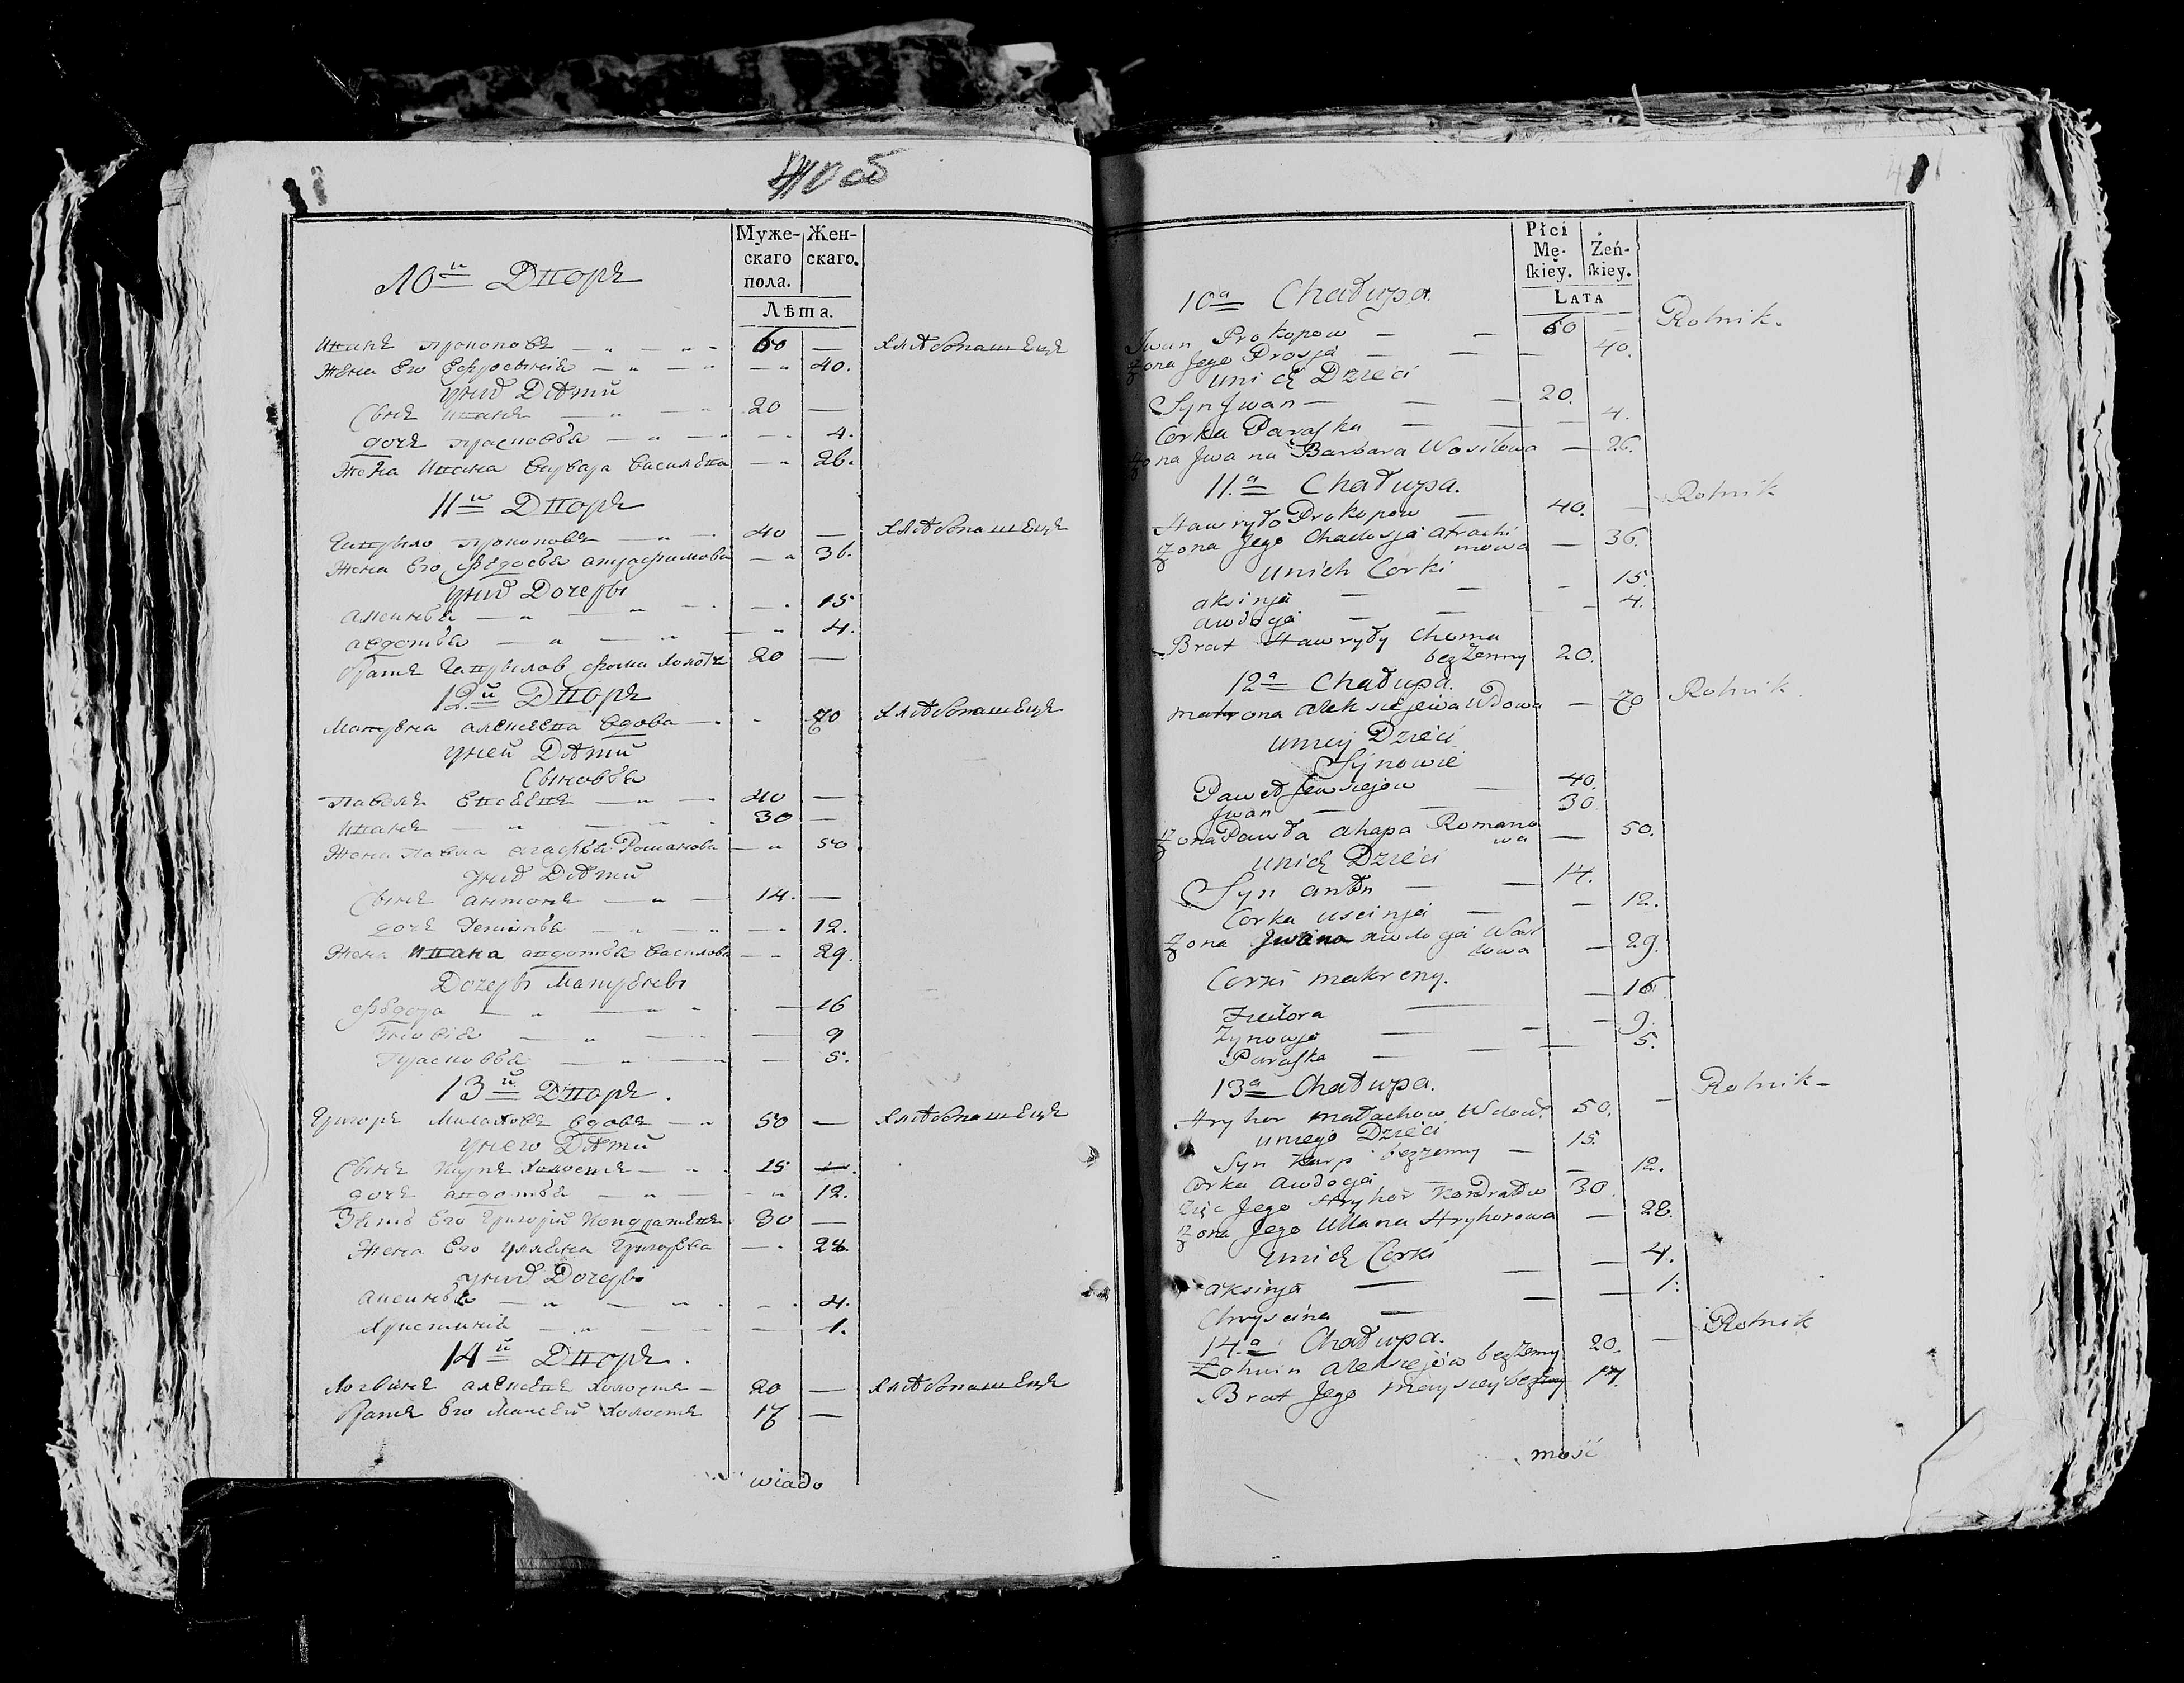 40 об
Муже-
скаго
пола.
Жен-
скаго.
Лѣта.
10й Дворъ
Иванъ Прокоповъ 60 — хлѣбопашецъ
Жена Его Ефросинiя — 40.
у них Дѣти
Сынъ Иванъ 20 —
дочъ Прасковья — 4.
Жена Ивана Варвара Василева — 26.
11й Дворъ
Гаврыло Прокоповъ 40 — хлѣбопашецъ
Жена Его Федосья Атрафимова — 36.
у них Дочеры
Аксинья — 15
Авдотья — 4.
Братъ Гаврылов Фома холостъ 20 —
12й Дворъ
Матрына Алексѣева вдова — 70 хлѣбопашецъ
у ней Дѣти
Сыновья
Павелъ Евсѣевъ 40 —
Иванъ 30 —
Жена Павла Агафья Романова — 50
у них Дѣти
Сынъ Антонъ 14. —
дочъ Устинья — 12.
Жена Ивана Авдотья Василова — 29.
Дочеры Матрыны
Федора — 16
Зиновiя — 9
Прасковья — 5.
13й Дворъ.
Григоръ Малаховъ вдовъ 50 — хлѣбопашецъ
у него Дѣти
Сынъ Карпъ холостъ 15 —
дочъ Авдотья — 12.
Зять Его Григорiй Кондратьевъ 30 —
Жена Его Улляна Григорева — 28.
у них Дочеры
Аксинья — 4.
Христинiя — 1.
14й Дворъ.
Логвинъ Алексѣевъ холостъ 20 — хлѣбопашецъ
Братъ Его Мансѣй холостъ 17 —
wiado
Płci
Mę-
ſkiey.
Żeń-
ſkiey.
LATA
10a Chałupa.
Jwan Prokopow 60 — Rolnik.
Żona Jego Prosja — 40.
u nich Dzieci
Syn Jwan 20.
Corka Paraſka — 4.
Żona Jwana Barbara Wasilowa — 26.
11.a Chałupa.
Hawryło Prokopow 40. — Rolnik
Żona Jego Chadosja Atrachi
mowa — 36.
u nich Corki
Aksinja — 15.
Awdoċja — 4.
Brat Hawryły Choma
bezżenny 20.
12a Chałupa.
Matrona Aleksiejewa Wdowa — 70 Rolnik.
u niey Dzieci
Synowie
Paweł Jewsiejow 40.
Jwan 30.
Żona Pawła Ahapa Romano
wa — 50.
u nich Dzieci
Syn Anton 14.
Corka Uscinja — 12.
Żona Jwana Awdocja Wasi
lowa — 29.
Corki Makreny.
Fiedora — 16
Zynowja — 9.
Paraſka — 5.
13a Chałupa.
Hryhor Małachow Wdowc 50. — Rolnik
u niego Dzieci
Syn Karp bezżenny 15.
Corka Awdocja — 12.
Zięć Jego Hryhor Kondratow 30.
Żona Jego Ullana Hryhorowa — 28.
u nich Corki
Aksinja — 4.
Chryscina — 1.
14.a Chałupa.
Łohwin Aleksiejow bezżenny 20. — Rolnik
Brat Jego Maysiey bezżenny 17.
mość